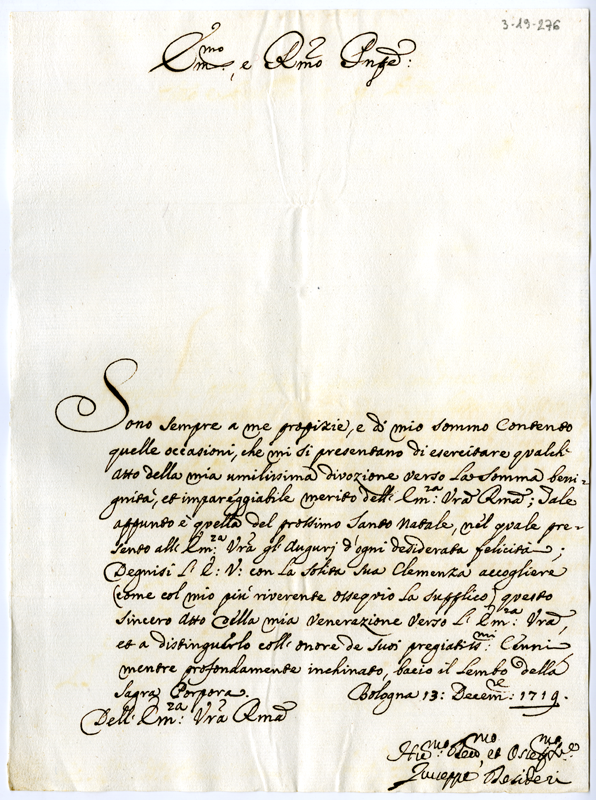 3-19-276
Em.mo, e R.mo Pnpe:
Sono sempre a me propizie, e di mio sommo Contento
quelle occasioni, che mi si presentano di esercitare qualche
atto della mia umilissima divozione verso La Somma beni-
gnità, et impareggiabile merito dell' Em.za Vra Rma; Tale
appunto è quella del prossimo Santo Natale, nel quale pre-
sento all' Em.za Vra gl' Augurj d'ogni desiderata felicità;
Degnisi L' E: V: con La Solita Sua Clemenza accogliere
(come col mio più riverente ossequio La supplico) questo
sincero atto della mia venerazione verso L' Em.za Vra,
et a distinguerlo coll' onore de Suoi pregiatiss.mi Cenni
mentre profondamente inchinato, bacio il Lembo della
Sagra Porpora. Bologna 13: Decem.re: 1719.
Dell' Em.za Vra Rma
Hu.mo Devo.mo, et
Giuseppe Desideri